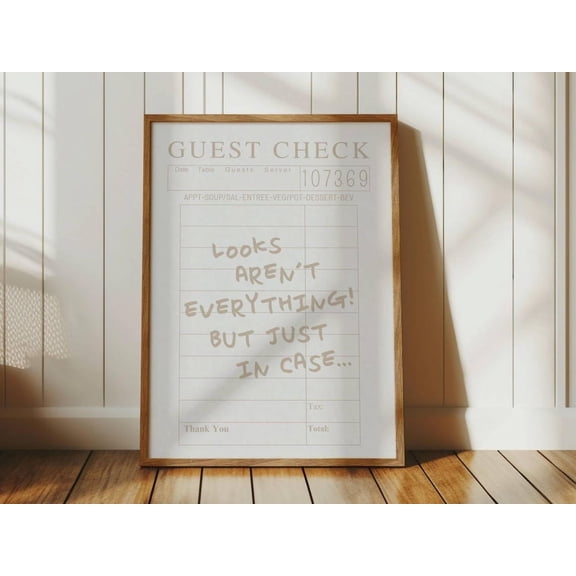 GUEST CHECK
Date Table Guests Server
107369
APPT-SOUP/SAL-ENTREE-VEG/POT-DESSERT-BEV
LOOKS
AREN'T
EVERYTHING!
BUT JUST
IN CASE...
Tax:
Thank You Total: